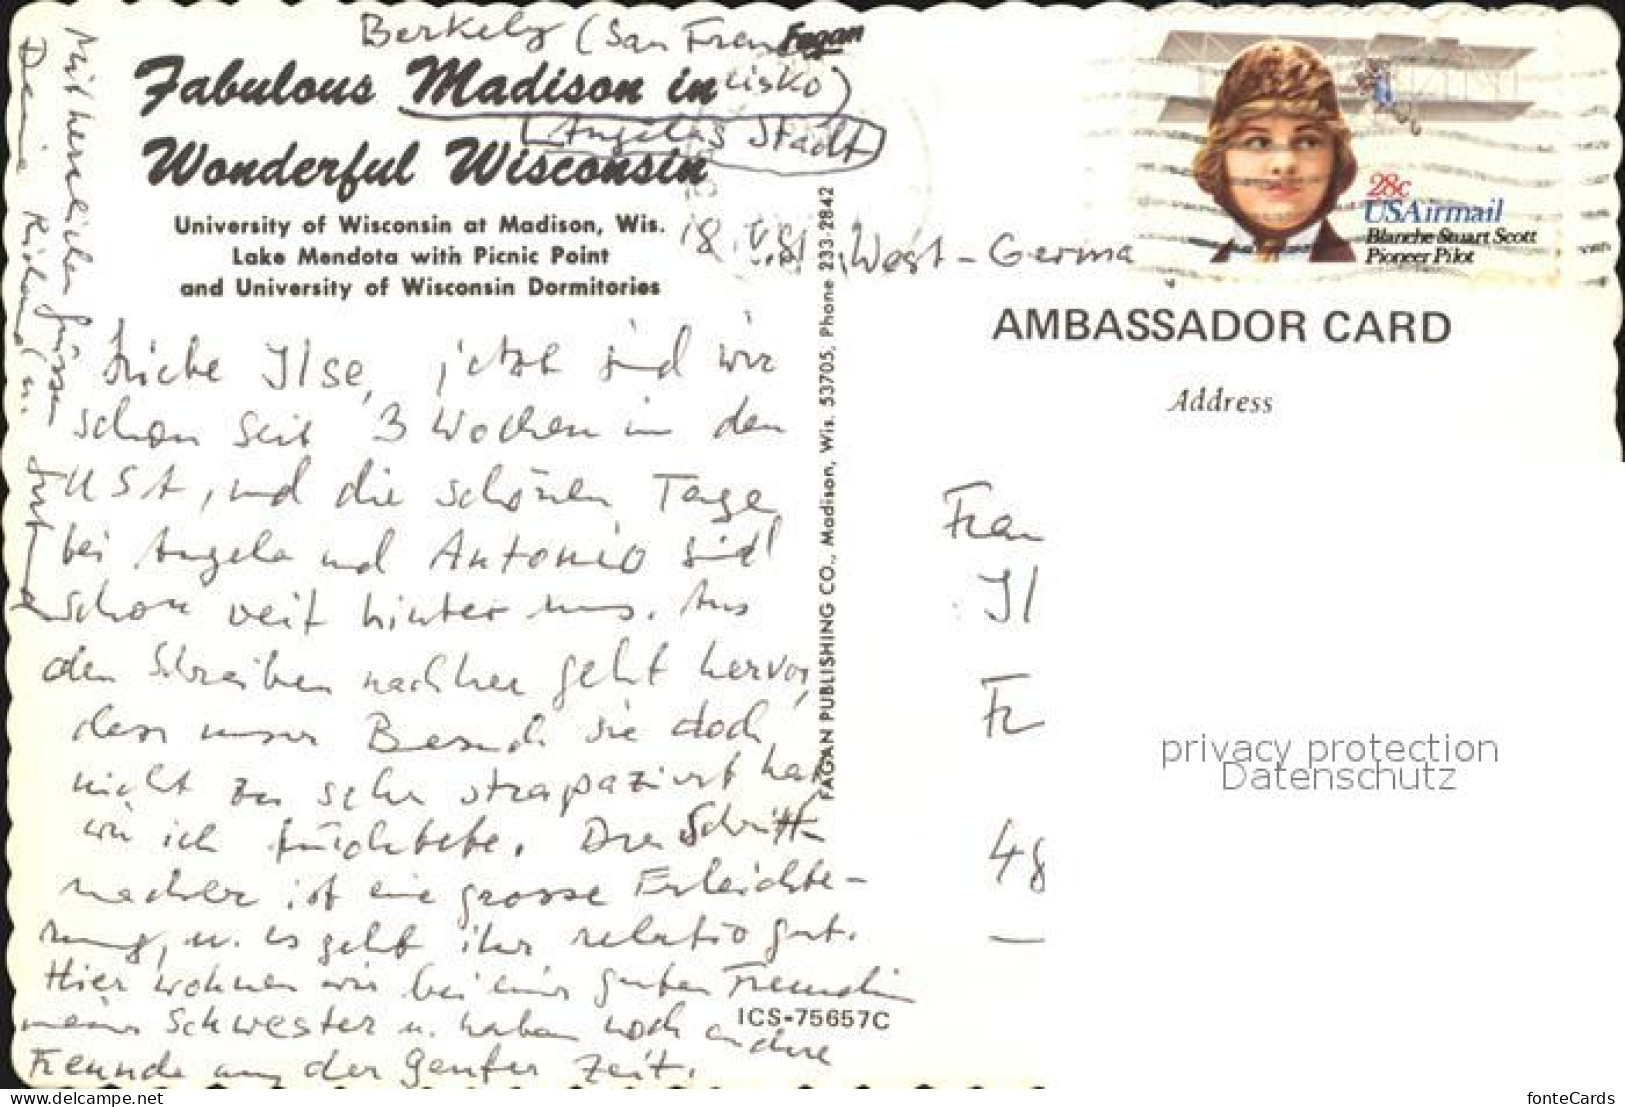 Berkely (San Fran
cisko)
Fagan
Fabulous Madison in
(Angelas Stadt)
Wonderful Wisconsin
University of Wisconsin at Madison, Wis.
Lake Mendota with Picnic Point
and University of Wisconsin Dormitories
18.V.81
West-Germa
28c
USAirmail
Blanche Stuart Scott
Pioneer Pilot
AMBASSADOR CARD
Address
Liebe Ilse, jetzt sind wir
schon seit 3 Wochen in den
USA, und die schönen Tage
bei Angela und Antonio sind
schon weit hinter uns. Aus
den Schreiben nachher geht hervor,
dass unser Besuch sie doch
nicht zu sehr strapaziert hat
wie ich fürchtete. Der Schritt-
macher ist eine grosse Erleichte-
rung, u. es geht ihr relativ gut.
Hier wohnen wir bei einer guten Freundin
meiner Schwester u. haben noch andere
Freunde aus der Genfer Zeit.
Mit herzlichen Grüssen
Deine
Richard u.
FAGAN PUBLISHING CO., Madison, Wis. 53705, Phone 233-2842
ICS-75657C
Frau
Il
Fr
48
privacy protection
Datenschutz
www.delcampe.net
fonteCards